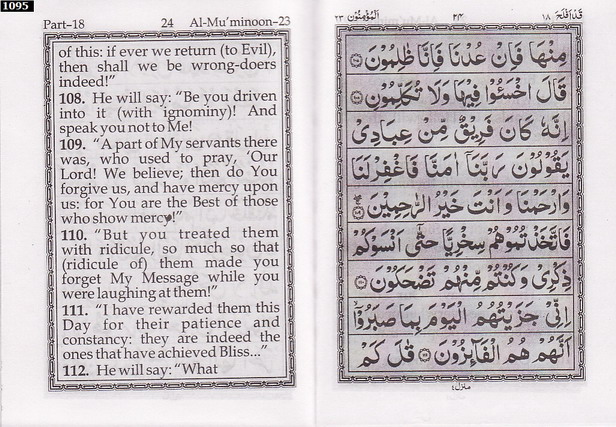 1095
Part–18 24 Al-Mu’minoon–23
of this: if ever we return (to Evil),
then shall we be wrong-doers
indeed!”
108. He will say: “Be you driven
into it (with ignominy)! And
speak you not to Me!
109. “A part of My servants there
was, who used to pray, ‘Our
Lord! We believe; then do You
forgive us, and have mercy upon
us: for You are the Best of those
who show mercy!”
110. “But you treated them
with ridicule, so much so that
(ridicule of) them made you
forget My Message while you
were laughing at them!”
111. “I have rewarded them this
Day for their patience and
constancy: they are indeed the
ones that have achieved Bliss...”
112. He will say: “What
قد افلح ١٨ ٢٤ المؤمنون ٢٣
مِنْهَا فَاِنْ عُدْنَا فَاِنَّا ظٰلِمُوْنَ ﴿١٠٧﴾
قَالَ اخْسَـُٔوْا فِيْهَا وَلَا تُكَلِّمُوْنِ ﴿١٠٨﴾
اِنَّهٗ كَانَ فَرِيْقٌ مِّنْ عِبَادِىْ
يَقُوْلُوْنَ رَبَّنَآ اٰمَنَّا فَاغْفِرْ لَنَا
وَارْحَمْنَا وَاَنْتَ خَيْرُ الرّٰحِمِيْنَ ﴿١٠٩﴾
فَاتَّخَذْتُمُوْهُمْ سِخْرِيًّا حَتّٰٓى اَنْسَوْكُمْ
ذِكْرِىْ وَكُنْتُمْ مِّنْهُمْ تَضْحَكُوْنَ ﴿١١٠﴾
اِنِّىْ جَزَيْتُهُمُ الْيَوْمَ بِمَا صَبَرُوْٓا
اَنَّهُمْ هُمُ الْفَآئِزُوْنَ ﴿١١١﴾ قٰلَ كَمْ
منزل ٤